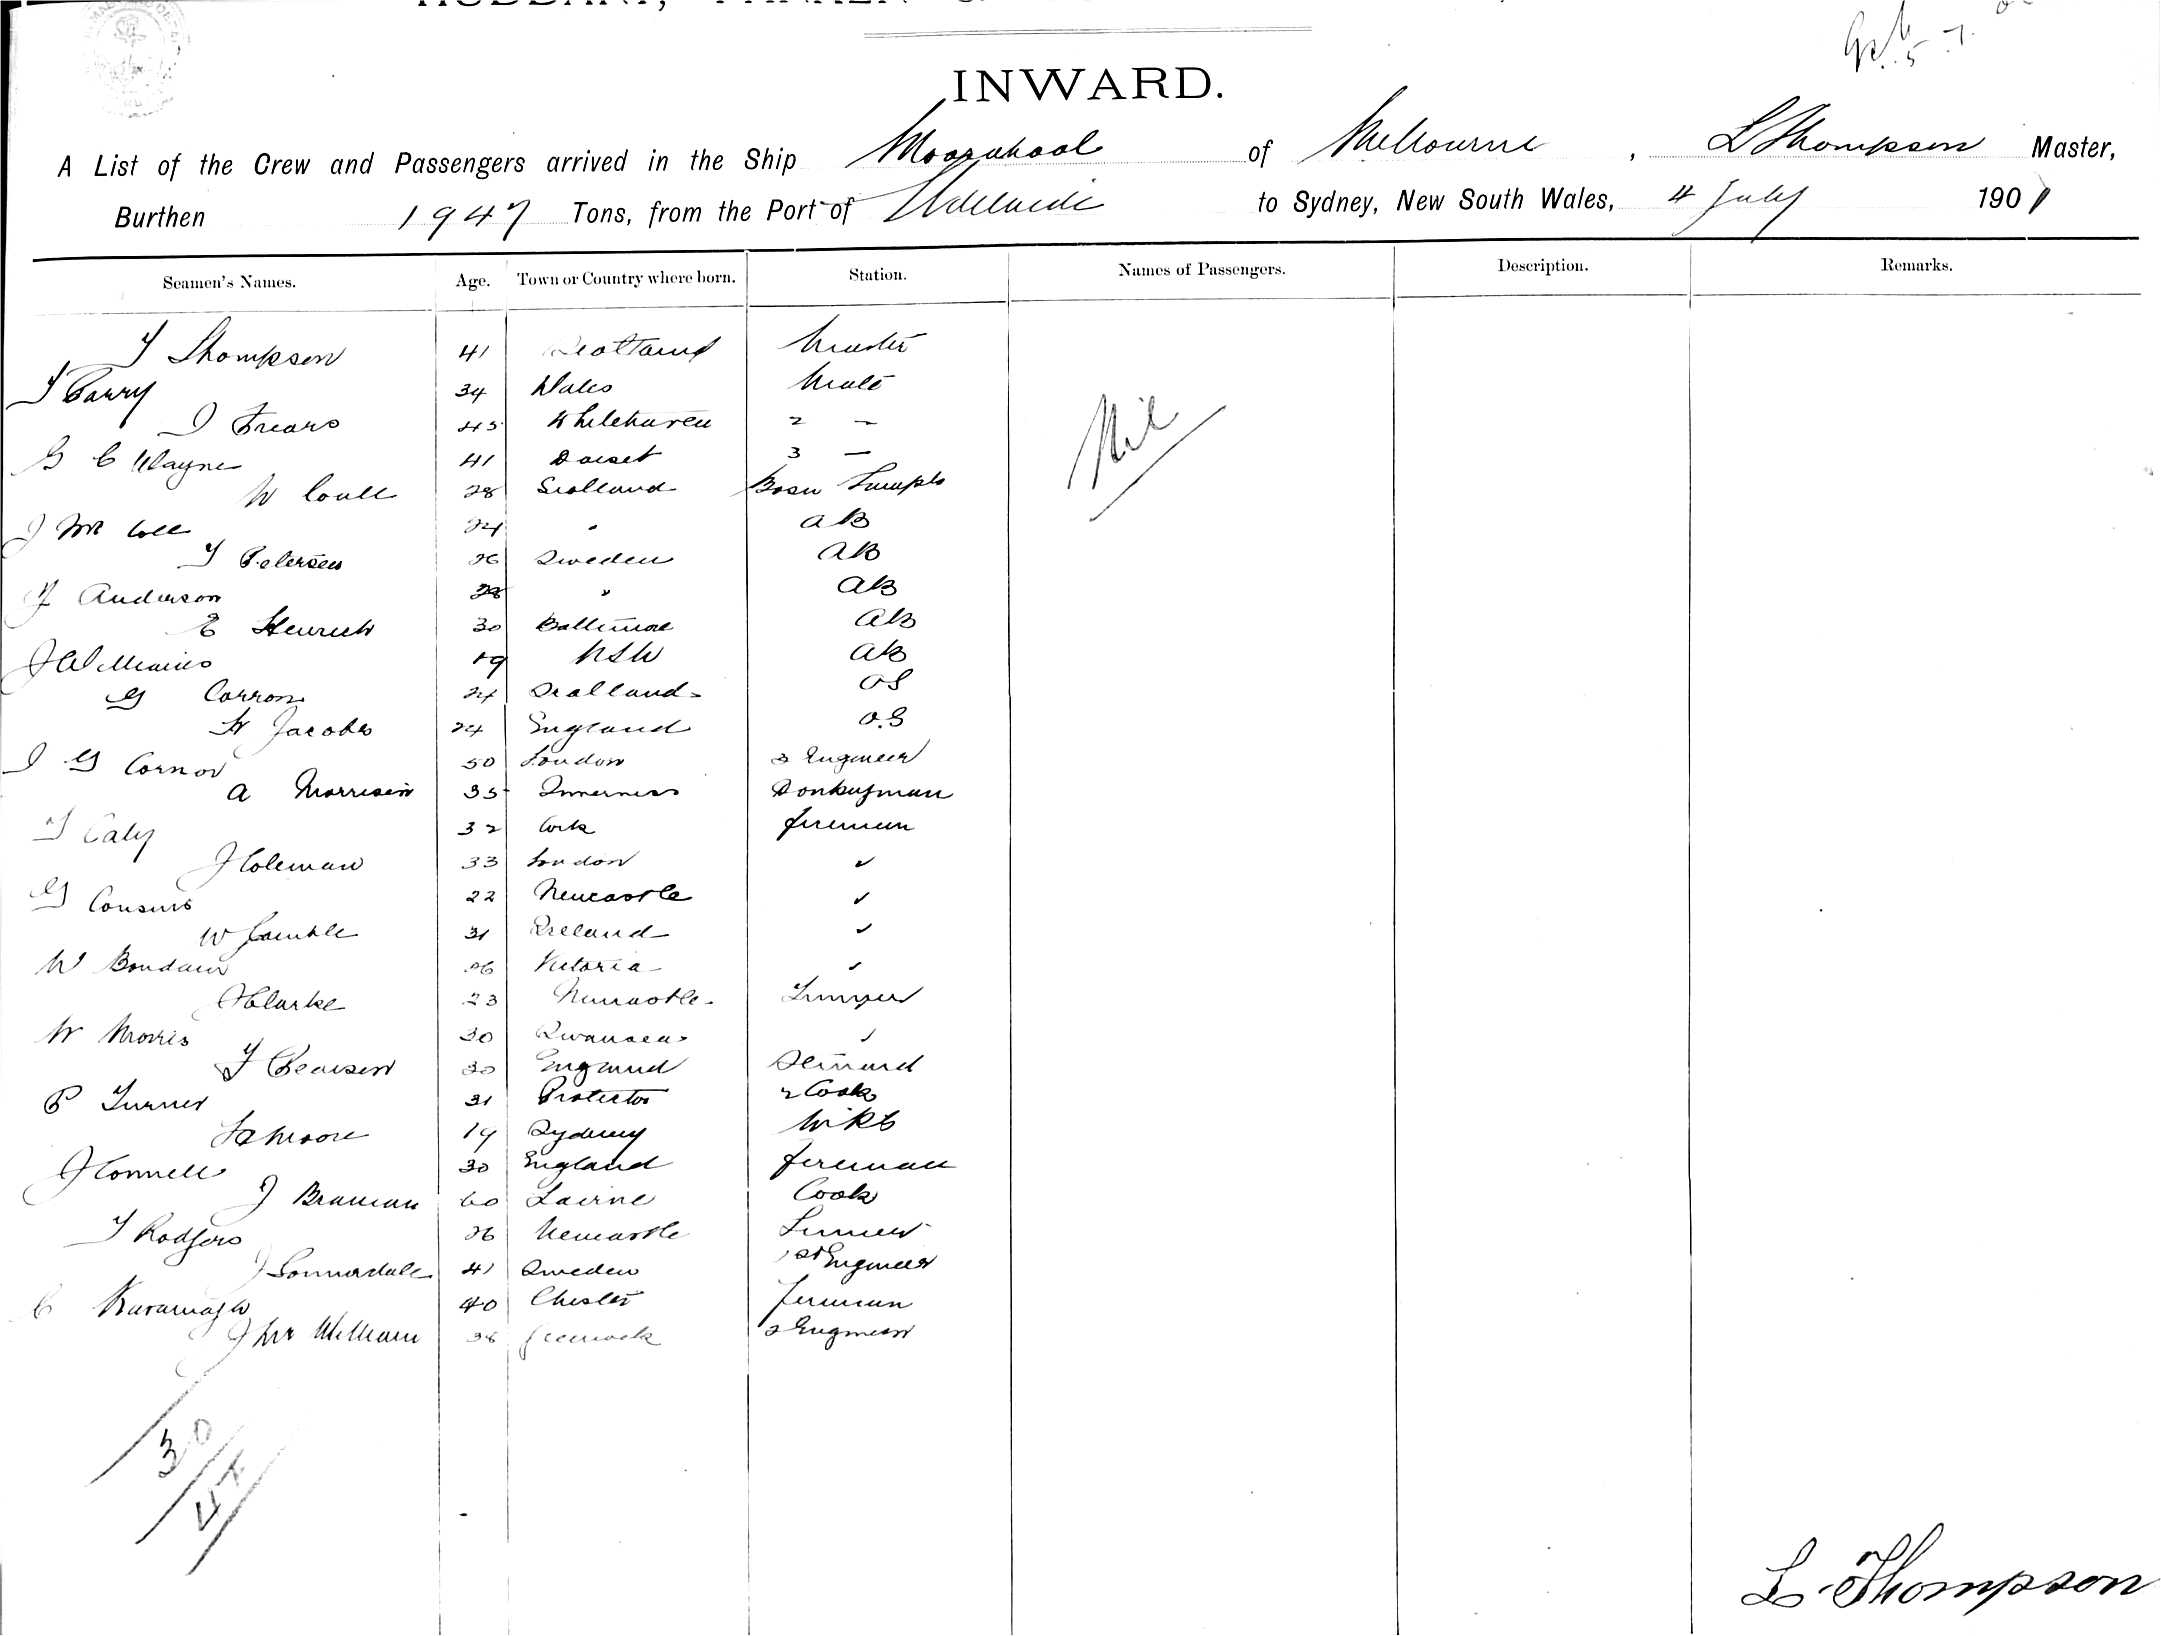 INWARD.
A List of the Crew and Passengers arrived in the Ship Moorabool of Melbourne, L Thompson Master,
Burthen 1947 Tons, from the Port of Adelaide to Sydney, New South Wales, 4 July 1901
Seamen's Names. Age. Town or Country where born. Station. Names of Passengers. Description. Remarks.
J Thompson 41 Scotland Master
34 Wales Mate
Nil
J Frears 45 Whitehaven 2 —
G C Wayne 41 Dorset 3 —
W Coull 28 Scotland Bosn Lamps
J Mc Coll 24 " AB
J Petersen 26 Sweden AB
J Anderson 28 " AB
E Heurich 30 Baltimore AB
J Williams 19 NSW AB
G Corron 24 Scotland OS
W Jacobs 24 England O.S
J G Connor 50 London 3 Engineer
A Morrison 35 Inverness Donkeyman
J Caly 32 Cork fireman
J Coleman 33 London "
G Cousins 22 Newcastle "
W Gamble 31 Ireland "
W 26 Victoria "
J Clarke 23 Newcastle Trimmer
W Morris 30 Swansea "
J Pearson 30 England Steward
P Turner 31 2 Cook
Moore 19 Sydney
J Connell 30 England fireman
J 60 Cook
J Rodgers 26 Newcastle Trimmer
J Sonnerdale 41 Sweden 1st Engineer
C Kavanagh 40 Chester fireman
J Mc William 38 Greenock 2 Engineer
30
L. Thompson